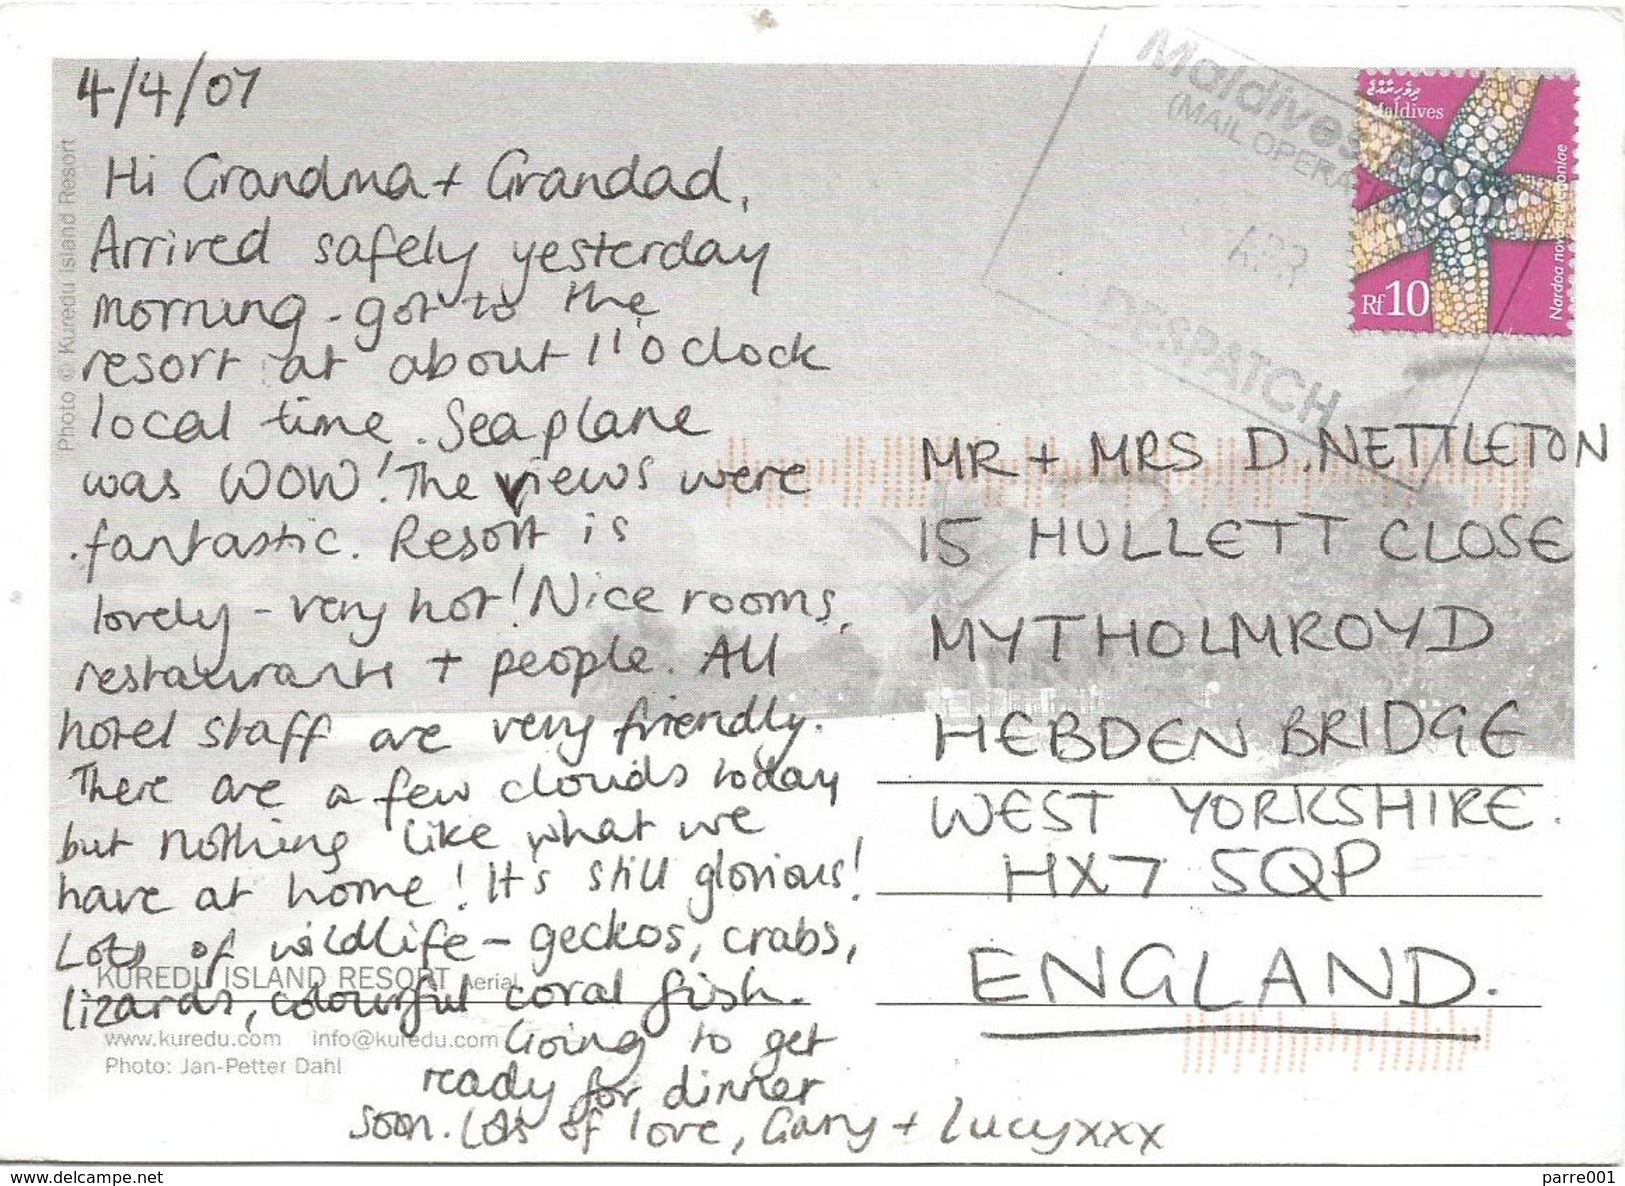 4/4/07
Hi Grandma + Grandad,
Arrived safely yesterday
morning - got to the
resort at about 11 o'clock
local time. Seaplane
was WOW! The views were
fantastic. Resort is
lovely - very hot! Nice rooms,
restaurants + people. All
hotel staff are very friendly.
There are a few clouds today
but nothing like what we
have at home! It's still glorious!
Lots of wildlife - geckos, crabs,
lizards, colourful coral fish.
Going to get
ready for dinner
soon. Lots of love, Gary + Lucy xxx
Photo © Kuredu Island Resort
KUREDU ISLAND RESORT Aerial
www.kuredu.com info@kuredu.com
Photo: Jan-Petter Dahl
Maldives
(MAIL OPERAT
APR
DESPATCH
ދިވެހިރާއްޖެ
Maldives
Rf10
Nardoa novaecaledoniae
MR + MRS D. NETTLETON
15 HULLETT CLOSE
MYTHOLMROYD
HEBDEN BRIDGE
WEST YORKSHIRE.
HX7 5QP
ENGLAND.
delcampe.net
parre001